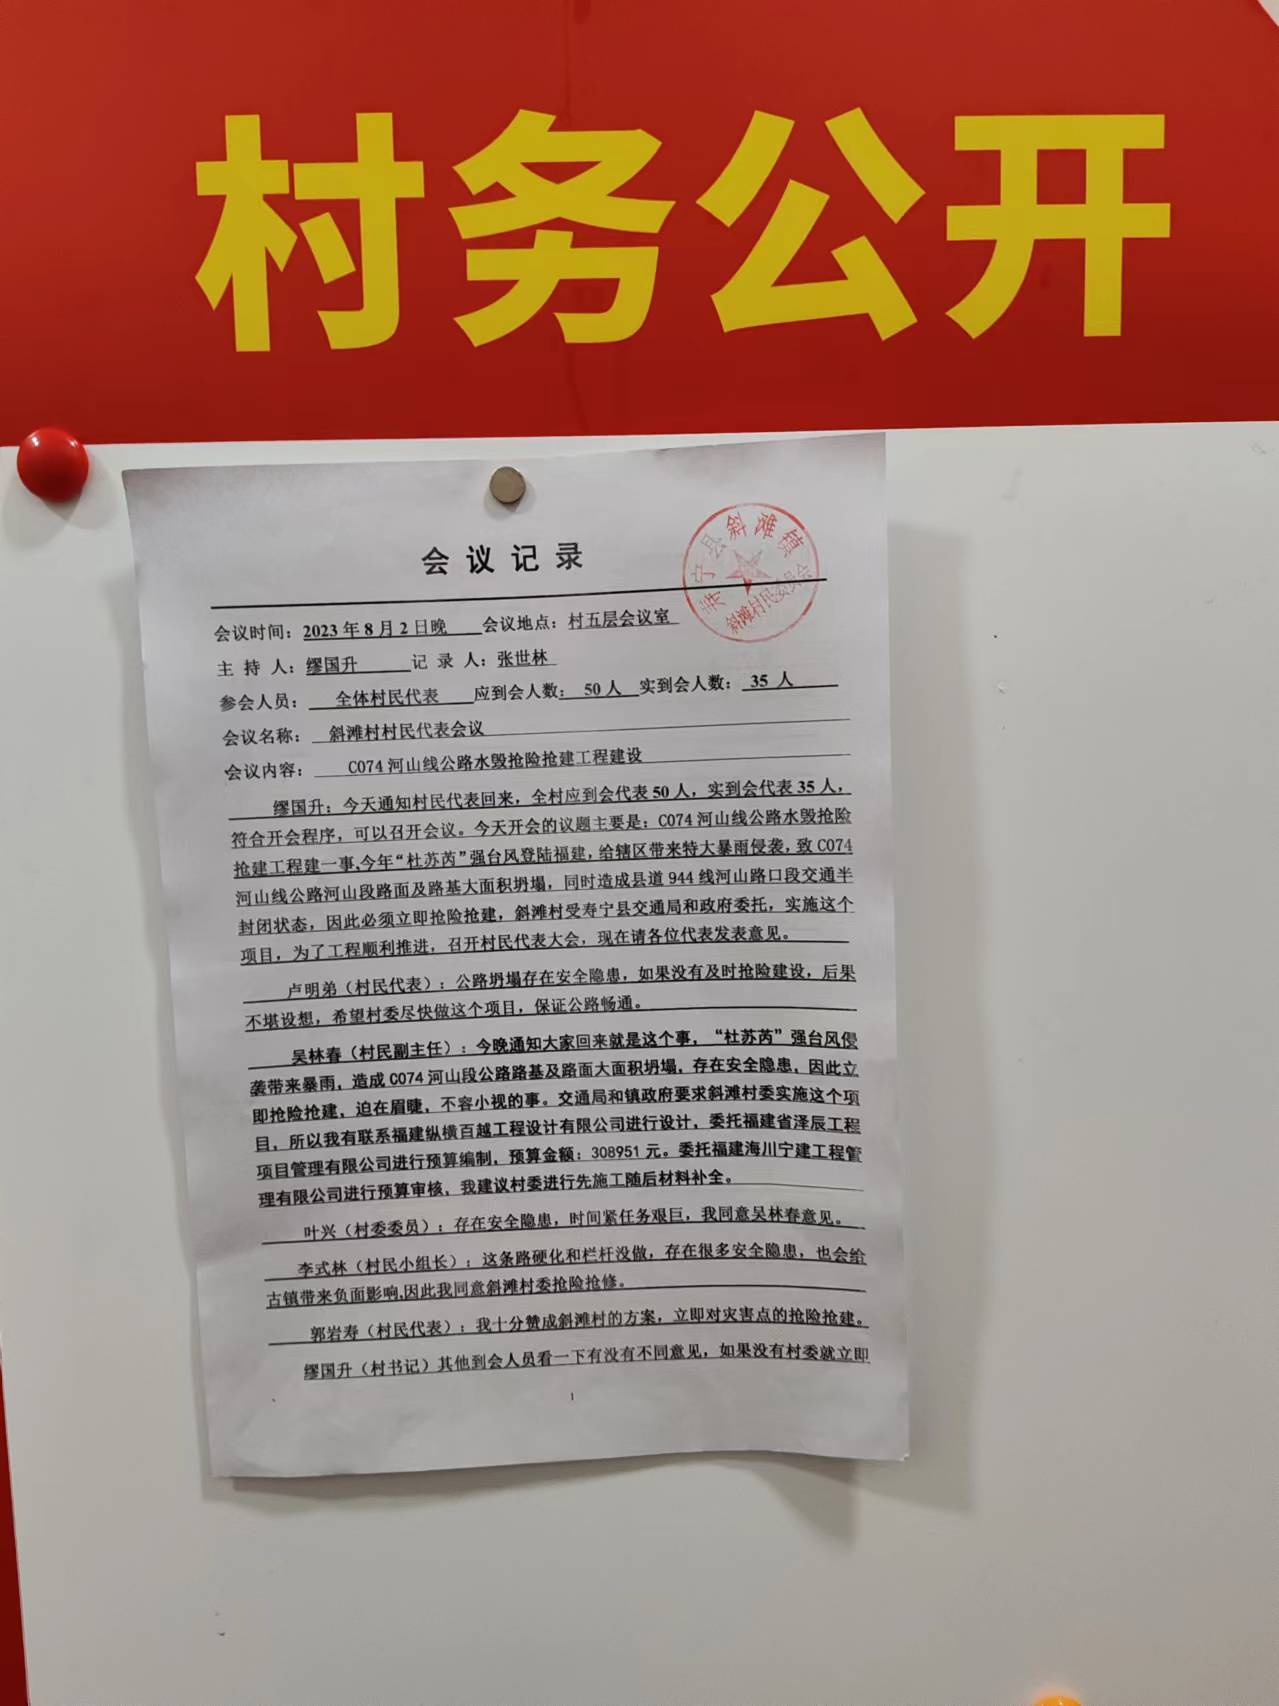 村务公开
寿宁县斜滩镇
斜滩村民委员会
会议记录
会议时间：2023年8月2日晚 会议地点：村五层会议室
主 持 人：缪国升 记 录 人：张世林
参会人员： 全体村民代表 应到会人数： 50人 实到会人数： 35 人
会议名称： 斜滩村村民代表会议
会议内容： C074河山线公路水毁抢险抢建工程建设
缪国升：今天通知村民代表回来，全村应到会代表50人，实到会代表35人，
符合开会程序，可以召开会议。今天开会的议题主要是：C074河山线公路水毁抢险
抢建工程建一事,今年“杜苏芮”强台风登陆福建，给辖区带来特大暴雨侵袭，致C074
河山线公路河山段路面及路基大面积坍塌，同时造成县道944线河山路口段交通半
封闭状态，因此必须立即抢险抢建，斜滩村受寿宁县交通局和政府委托，实施这个
项目，为了工程顺利推进，召开村民代表大会，现在请各位代表发表意见。
卢明弟（村民代表）：公路坍塌存在安全隐患，如果没有及时抢险建设，后果
不堪设想，希望村委尽快做这个项目，保证公路畅通。
吴林春（村民副主任）：今晚通知大家回来就是这个事，“杜苏芮”强台风侵
袭带来暴雨，造成C074河山段公路路基及路面大面积坍塌，存在安全隐患，因此立
即抢险抢建，迫在眉睫，不容小视的事。交通局和镇政府要求斜滩村委实施这个项
目，所以我有联系福建纵横百越工程设计有限公司进行设计，委托福建省泽辰工程
项目管理有限公司进行预算编制，预算金额：308951元。委托福建海川宁建工程管
理有限公司进行预算审核，我建议村委进行先施工随后材料补全。
叶兴（村委委员）：存在安全隐患，时间紧任务艰巨，我同意吴林春意见。
李式林（村民小组长）：这条路硬化和栏杆没做，存在很多安全隐患，也会给
古镇带来负面影响,因此我同意斜滩村委抢险抢修。
郭岩寿（村民代表）：我十分赞成斜滩村的方案，立即对灾害点的抢险抢建。
缪国升（村书记）其他到会人员看一下有没有不同意见，如果没有村委就立即
1